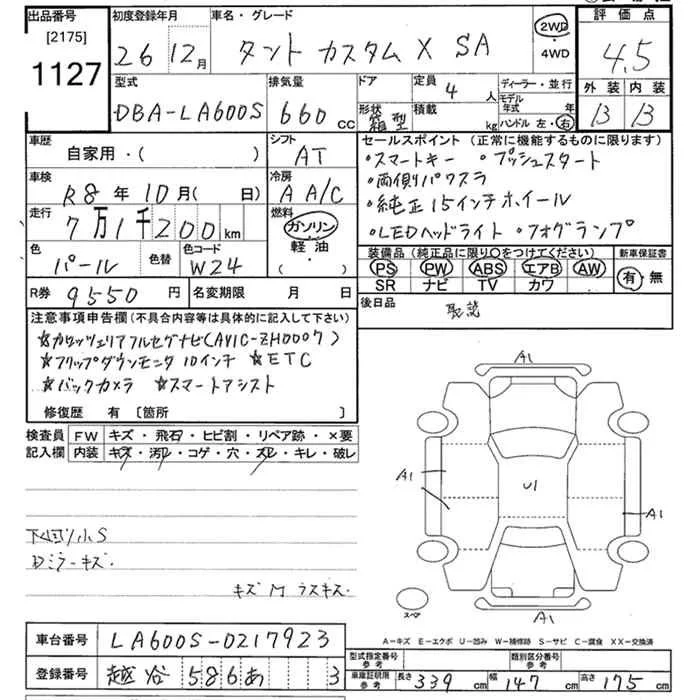 出品番号 初度登録年月 車名・グレード 評価点
[2175]
1127
26 12月 タント カスタム X SA 2WD・4WD 4.5
型式 排気量 ドア 定員 4人 ディーラー・並行 外装 内装
DBA-LA600S 660cc 形状 箱型 積載 kg モデル年式 年 ハンドル 左・右 B B
車歴 シフト セールスポイント (正常に機能するものに限ります)
自家用・( ) AT
・スマートキー ・プッシュスタート
車検 冷房 ・両側パワスラ
R8年10月( 日) A A/C ・純正15インチホイール
走行 燃料 ・LEDヘッドライト ・フォグランプ
7万1千200km ガソリン・軽油・( )
色 色替 色コード 装備品 (純正品に限り○をつけてください) 新車保証書
パール W24 PS PW ABS エアB AW 有・無
SR ナビ TV カワ
R券 9550円 名変期限 月 日 後日品 取説
注意事項申告欄 (不具合内容等は具体的に記入して下さい)
☆カロッツェリアフルセグナビ(AVIC-ZH0007)
☆フリップダウンモニタ 10インチ ☆ETC
☆バックカメラ ☆スマートアシスト
修復歴 有 〔箇所 〕
検査員 FW キズ・飛石・ヒビ割・リペア跡・×要
記入欄 内装 キズ・汚レ・コゲ・穴・スレ・キレ・破レ
A1
A1 U1 A1
A1
スペア
下回り小S
Dミラーキズ.
キズM ラスキズ.
A-キズ E-エクボ U-凹み W-補修跡 S-サビ C-腐食 XX-交換済
車台番号 LA600S-0217923
型式指定番号 参考 類別区分番号 参考
登録番号 越谷 586 あ 3
車庫証明限 参考 長さ 339cm 幅 147cm 高さ 175cm